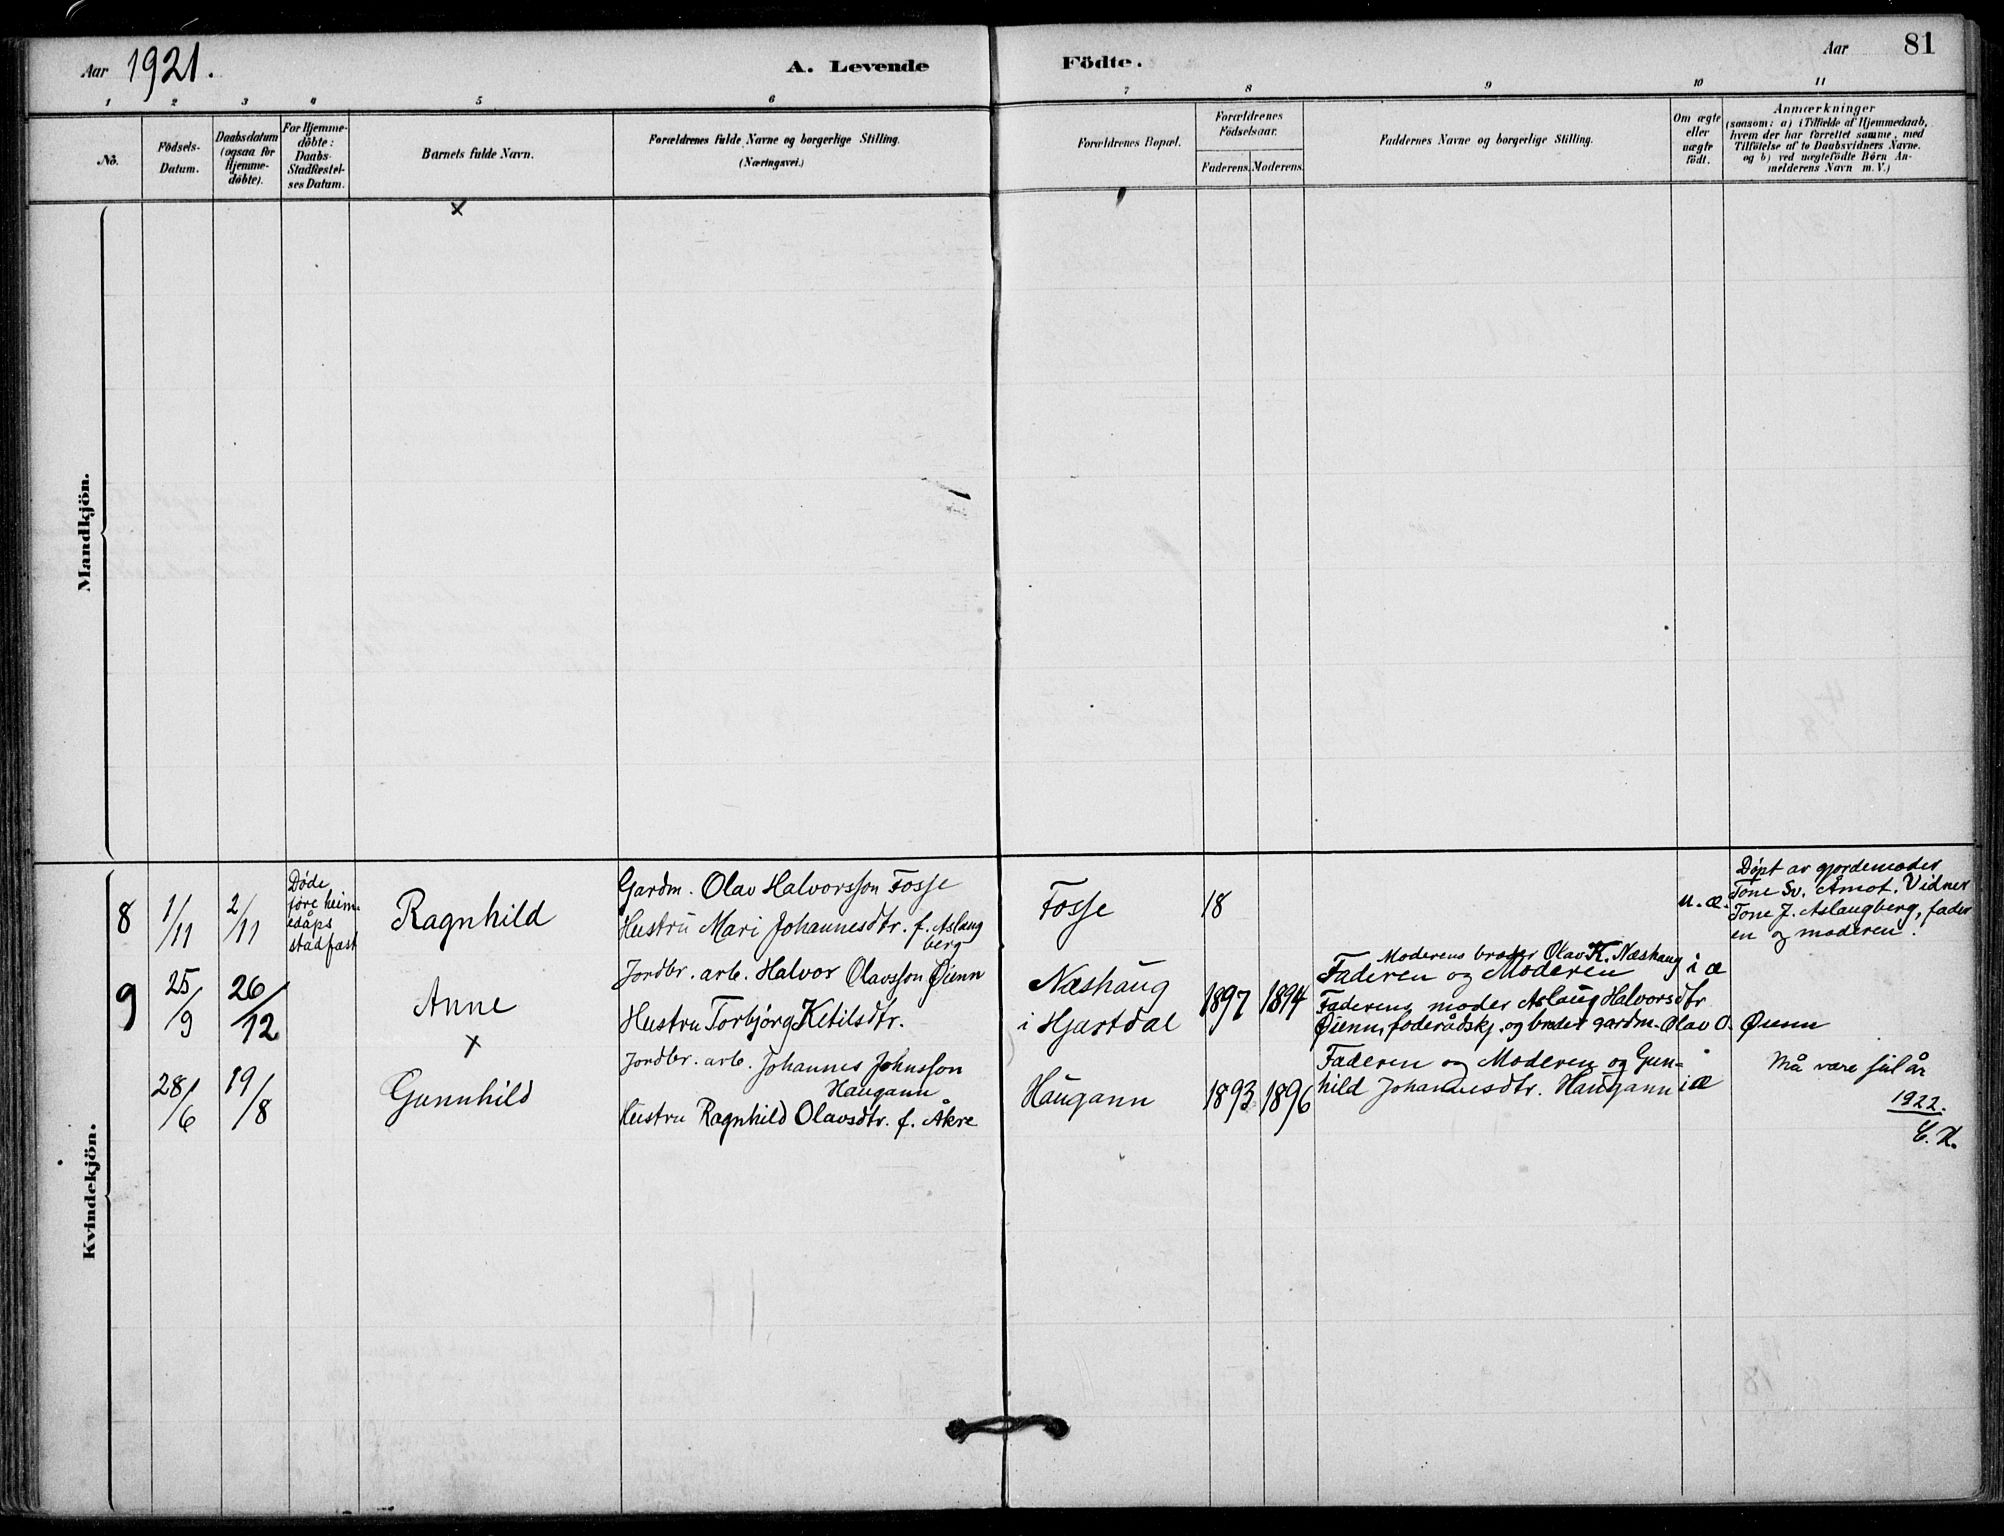 Aar 1921. A. Levende Födte. Aar 81
1 2 3 4 5 6 7 8 9 10 11
No. Födsels-Datum. Daabsdatum (ogsaa for Hjemme-döbte). For Hjemme-döbte: Daabs-Stadfæstel-ses Datum. Barnets fulde Navn. Forældrenes fulde Navne og borgerlige Stilling. (Næringsvei.) Forældrenes Bopæl. Forældrenes Födselsaar. Faderens. Moderens. Faddernes Navne og borgerlige Stilling. Om ægte eller uægte födt. Anmærkninger (saasom: a) i Tilfælde af Hjemmedaab, hvem der har forrettet samme, med Tilföielse af to Daabsvidners Navne. og b) ved uægtefödte Börn An-melderens Navn m.V.)
x
Mandkjön.
Kvindekjön.
8 1/11 2/11
Døde
føre heim-
edåps
stadfæst
Ragnhild
Gardm. Olav Halvorsson Fosse
Hustru Mari Johannesdtr. f. Aslaug
berg
Fosse
18
u. æ.
Døpt av gjordemoder
Tone Sv. Åmot. Vidner
Tone J. Aslaugberg, fader
en og moderen.
9 25/9 26/12
Anne
x
Jordbr. arb. Halvor Olavsson Øienn
Hustru Torbjørg Ketilsdtr.
Næshaug
i Hjartdal
1897 1894
Moderens broder Olav K. Næshaug
Faderen og Moderen
Faderens moder Aslaug Halvorsdtr
Øienn, foderådskj. og broder gardm. Olav O. Øienn
i æ
28/6 19/8
Gunnhild
Jordbr. arb. Johannes Johnsson
Haugann
Hustru Ragnhild Olavsdtr. f. Åkre
Haugann
1893 1896
Faderen og Moderen og Gun-
hild Johannesdtr. Haugann
i æ
Må være feil år
1922.